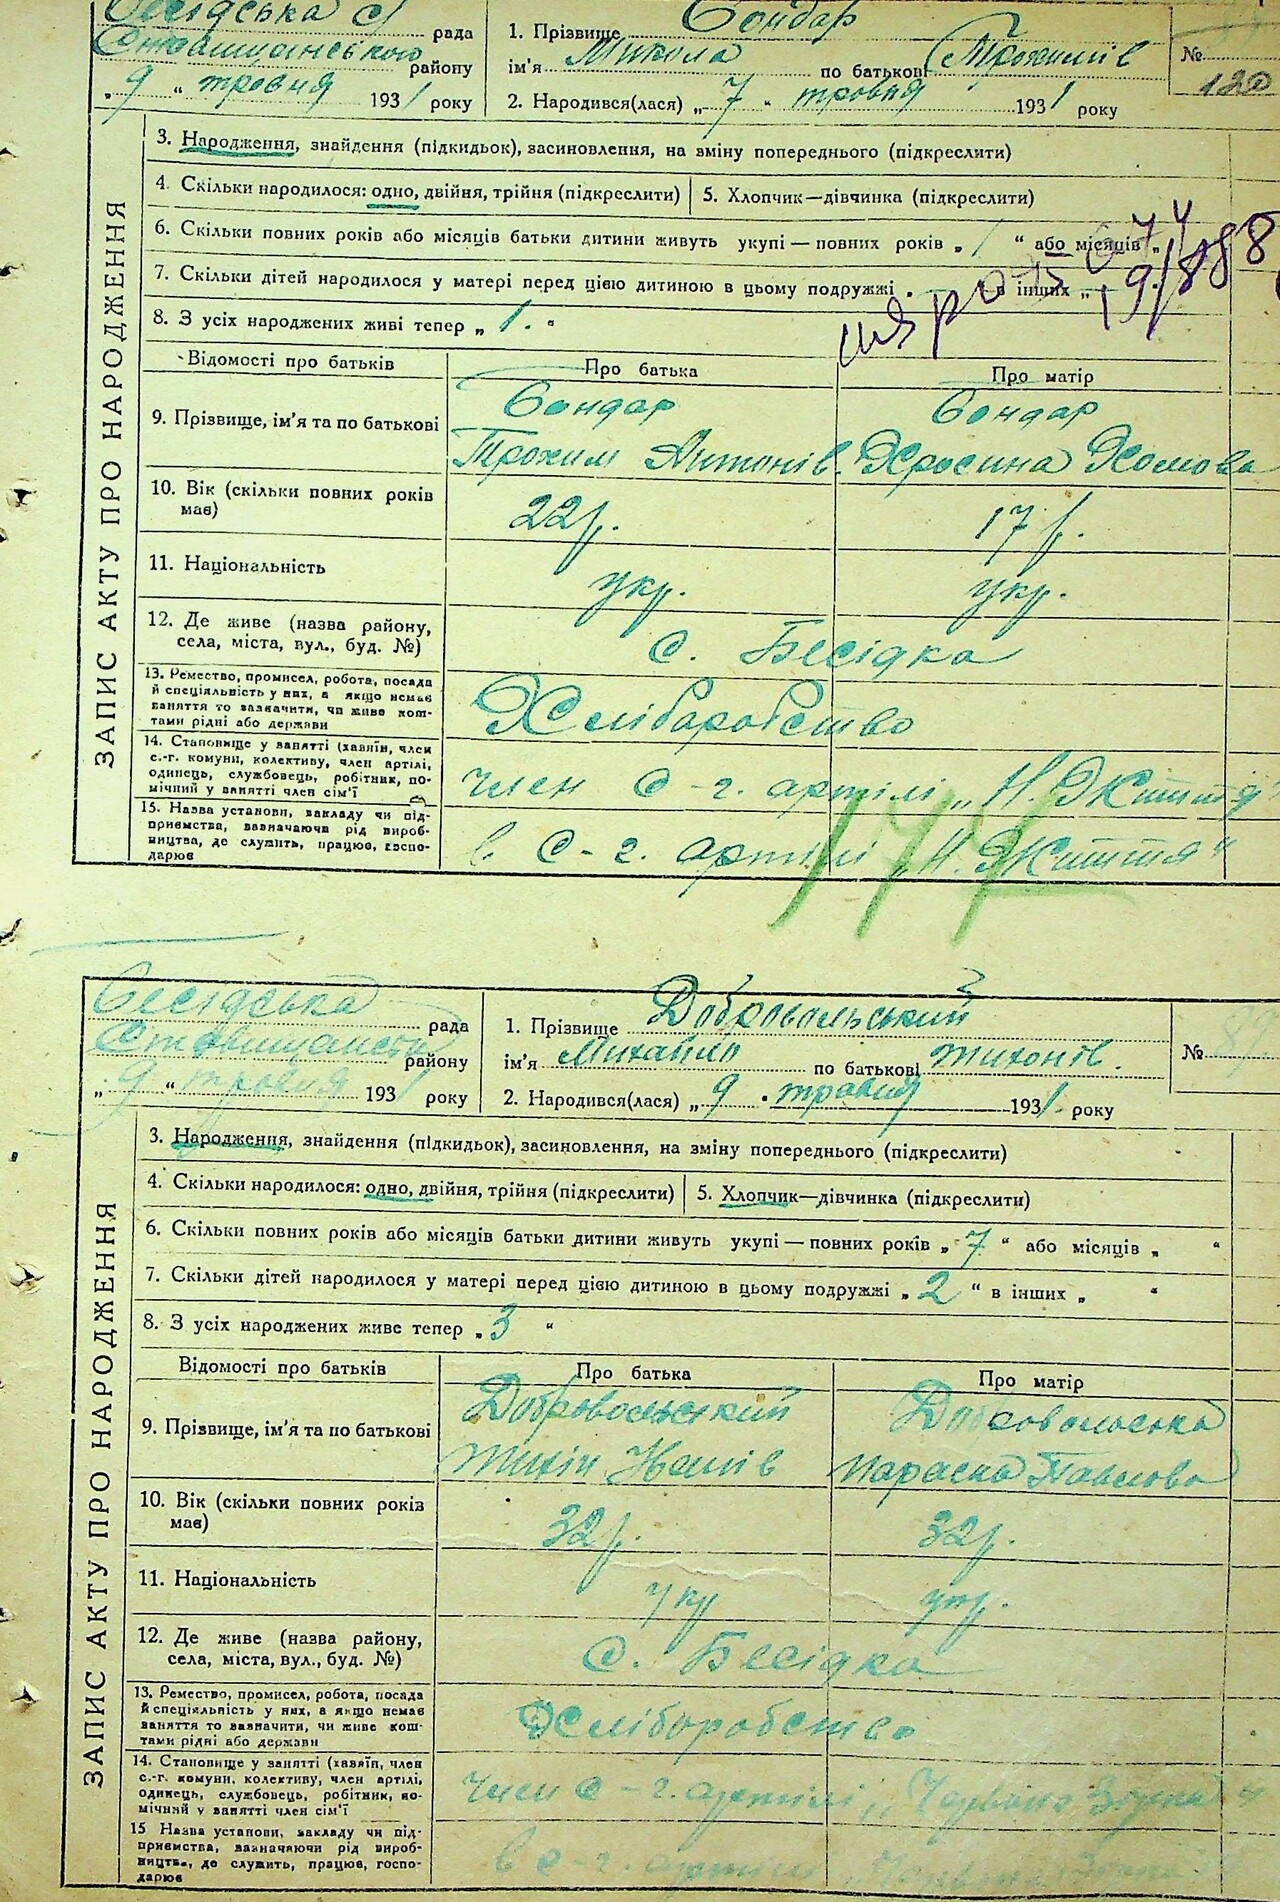 Бесідська с/рада
Ставищанського району
„9“ травня 1931 року
1. Прізвище Бондар
ім'я Микола по батькові Трохимів
2. Народився(лася) „7“ травня 1931 року
№
120
ЗАПИС АКТУ ПРО НАРОДЖЕННЯ
3. Народження, знайдення (підкидьок), засиновлення, на зміну попереднього (підкреслити)
4. Скільки народилося: одно, двійня, трійня (підкреслити) 5. Хлопчик—дівчинка (підкреслити)
6. Скільки повних років або місяців батьки дитини живуть укупі — повних років „1“ або місяців „
7. Скільки дітей народилося у матері перед цією дитиною в цьому подружжі в інших „
8. З усіх народжених живі тепер „1.“
Відомості про батьків Про батька Про матір
9. Прізвище, ім'я та по батькові Бондар Бондар
Трохим Антонів. Хросина Хомова
10. Вік (скільки повних років має) 22 р. 17 р.
11. Національність укр. укр.
12. Де живе (назва району, села, міста, вул., буд. №) с. Бесідка
13. Ремество, промисел, робота, посада
й спеціяльність у них, а якщо немає
заняття то зазначити, чи живе кош-
тами рідні або держави
Хліборобство
14. Становище у занятті (хазяїн, член
с.-г. комуни, колективу, член артілі,
одинець, службовець, робітник, по-
мічний у занятті член сім'ї
член с-г. артілі „Н. Життя“
15. Назва установи, закладу чи під-
приємства, зазначаючи рід вироб-
ництва, де служить, працює, госпо-
дарює
в с-г. артілі „Н. Життя“
Бесідська рада
Ставищанськ району
„9“ травня 1931 року
1. Прізвище Добровольський
ім'я Михайло по батькові Тихонів.
2. Народився(лася) „9. травня 1931 року
№
ЗАПИС АКТУ ПРО НАРОДЖЕННЯ
3. Народження, знайдення (підкидьок), засиновлення, на зміну попереднього (підкреслити)
4. Скільки народилося: одно, двійня, трійня (підкреслити) 5. Хлопчик—дівчинка (підкреслити)
6. Скільки повних років або місяців батьки дитини живуть укупі — повних років „7“ або місяців „ “
7. Скільки дітей народилося у матері перед цією дитиною в цьому подружжі „2“ в інших „ “
8. З усіх народжених живе тепер „3“
Відомості про батьків Про батька Про матір
9. Прізвище, ім'я та по батькові Добровольський Добровольська
Тихін Параска Павлова
10. Вік (скільки повних років має) 32 р. 32 р.
11. Національність укр укр.
12. Де живе (назва району, села, міста, вул., буд. №) с. Бесідка
13. Ремество, промисел, робота, посада
й спеціяльність у них, а якщо немає
заняття то зазначити, чи живе кош-
тами рідні або держави
Хліборобство
14. Становище у занятті (хазяїн, член
с.-г. комуни, колективу, член артілі,
одинець, службовець, робітник, по-
мічний у занятті член сім'ї
член с-г. артілі
15 Назва установи, закладу чи під-
приємства, зазначаючи рід вироб-
ництва, де служить, працює, госпо-
дарює
в с-г. артілі